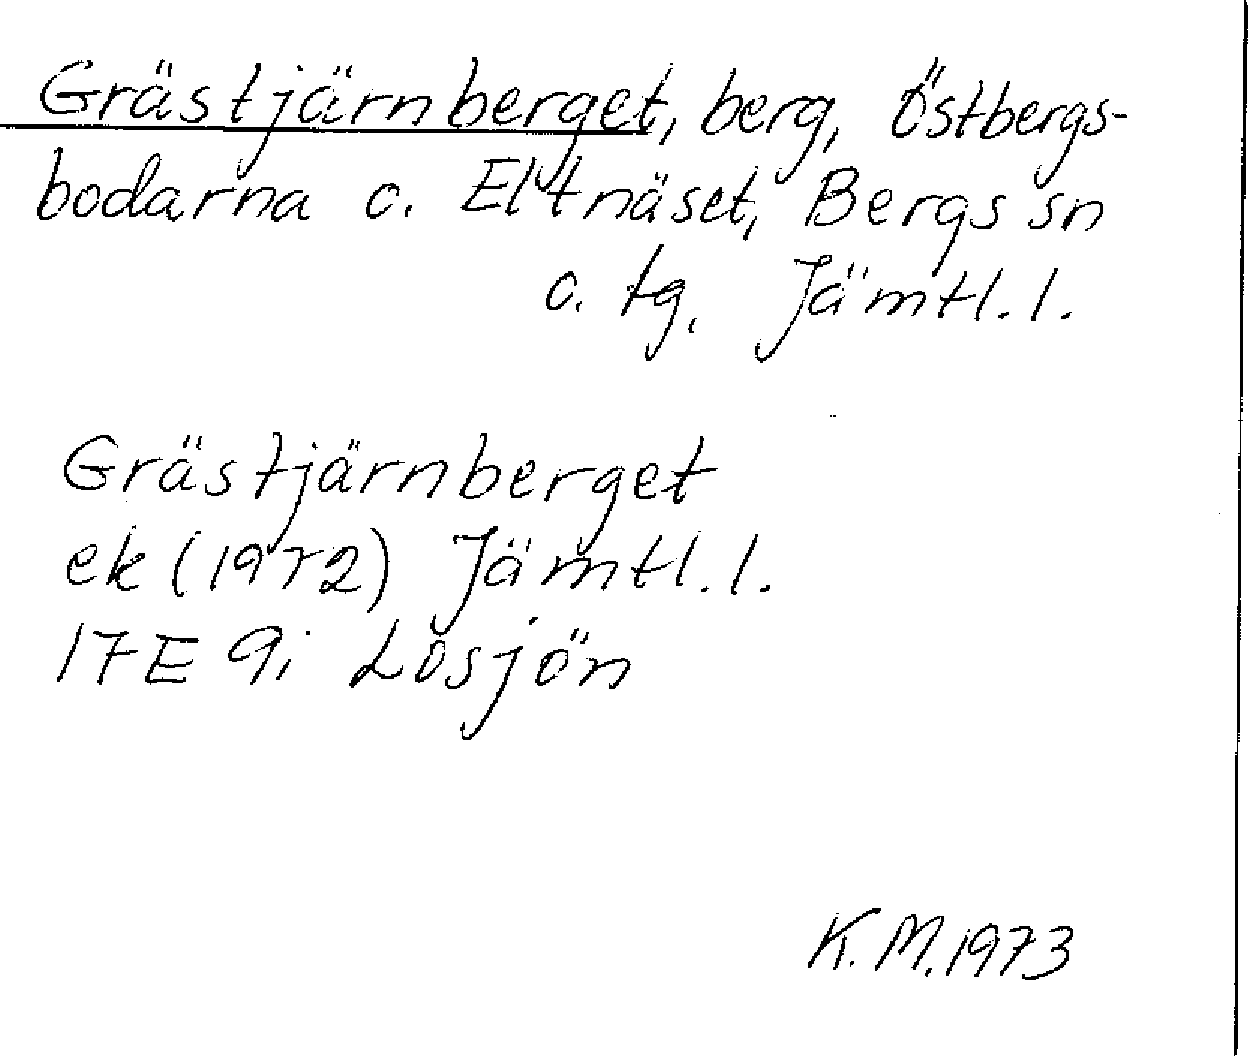 Grästjärnberget, berg, Östbergs-
bodarna o. Eltnäset, Bergs sn
o. tg. Jämtl. l.
Grästjärnberget
ek (1972) Jämtl. l.
17E 9i Lösjön
K. M. 1973